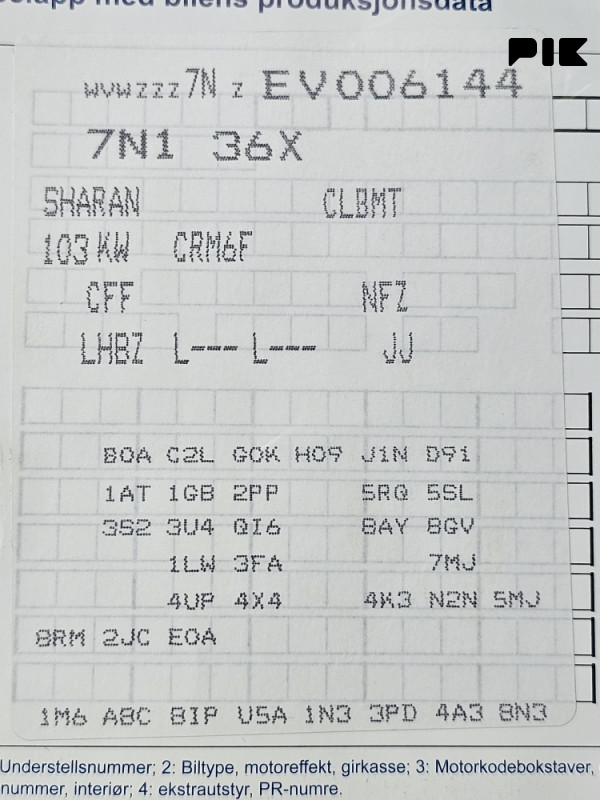 med bilens produksjonsdata
PIK
WVWZZZ7N Z EV006144
7N1 36X
SHARAN CLBMT
103 KW CRM6F
CFF NFZ
LHBZ L--- L--- JJ
B0A C2L G0K H09 J1N D91
1AT 1GB 2PP 5RQ 5SL
3S2 3U4 QI6 8AY 8GV
1LW 3FA 7MJ
4UP 4X4 4K3 N2N 5MJ
8RM 2JC E0A
1M6 A8C 8IP U5A 1N3 3PD 4A3 8N3
Understellsnummer; 2: Biltype, motoreffekt, girkasse; 3: Motorkodebokstaver,
nummer, interiør; 4: ekstrautstyr, PR-numre.